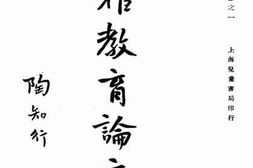 之一
上海兒童書局印行
稚教育論
陶知行